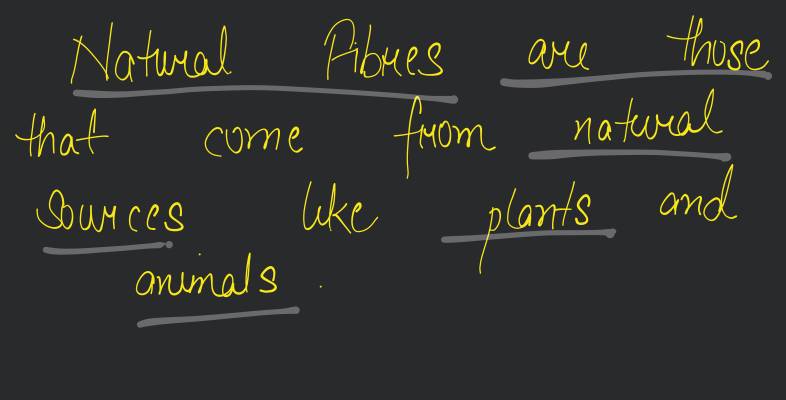 Natural Fibres are those
that come from natural
sources like plants and
animals.